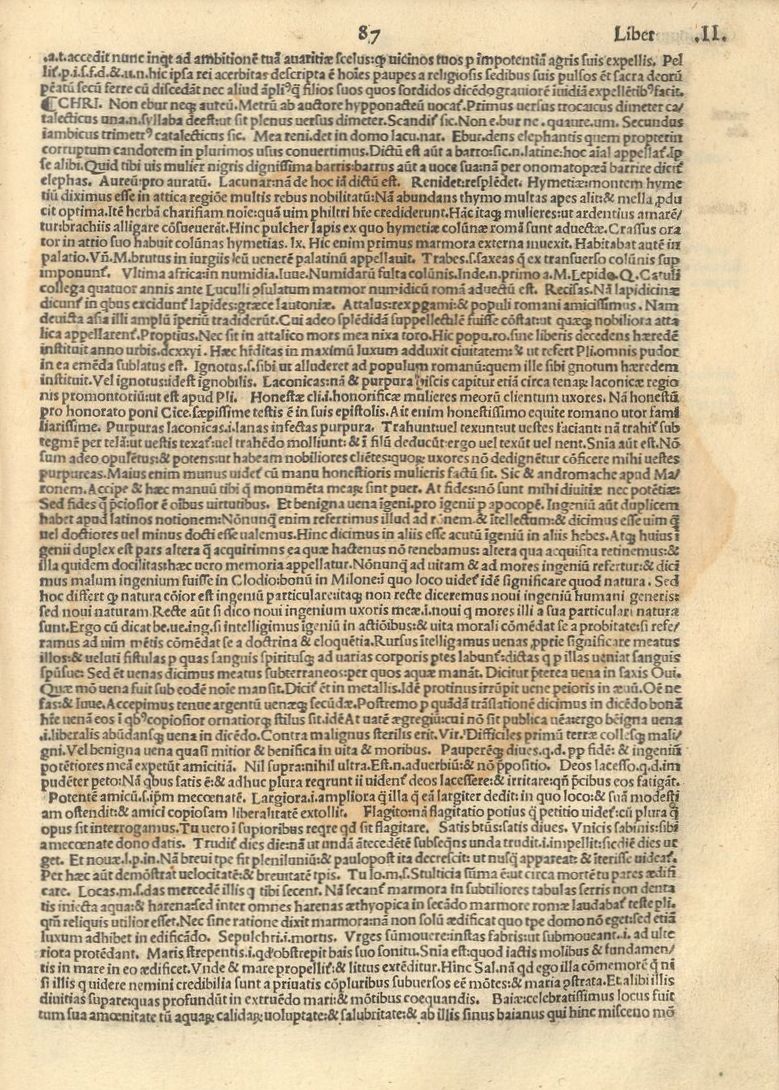 87 Liber .II.
.a.t.accedit nunc inq̃t ad ambitionē tuã auaritiæ scelus:q̨ uicinos tuos p impotentiã agris suis expellis. Pel
lis.p.i.s.f.d.& u.n.hic ipsa rei acerbitas descripta ē hoīes paupes a religiosis sedibus suis pulsos ēt sacra deorū
pēatū secū ferre cū discedãt nec aliud ãpli9 q̃ filios suos quos sordidos dicēdo grauiorē iuidiã expellētib9 facit.
¶CHRI. Non ebur neq̨ aureū. Metrū ab auctore hypponacteū uocaf̃. Primus uersus trocaicus dimeter ca/
talecticus una.n.syllaba deest:ut sit plenus uersus dimeter. Scandif̃ sic. Non e.bur ne .quaure.um. Secundus
iambicus trimetr9 catalecticus sic. Mea reni.det in domo lacu.nar. Ebur.dens elephantis quem propterin
corruptum candorem in plurimos usus conuertimus. Dictū est aūt a barro:sic.n.latine:hoc aial appellaf̃.ip
se alibi. Quid tibi uis mulier nigris dignissima barris:barrus aūt a uoce sua:nã per onomatopæã barrire dicif̃
elephas. Aureū:pro auratū. Lacunar:nã de hoc iã dictū est. Renidet:resplēdet. Hymetiæ:montem hyme
tiū diximus esse in attica regiōe multis rebus nobilitatū: Nã abundans thymo multas apes alit:& mella ,pdu
cit optima. Itē herbã charisiam noīe:quã uim philtri hr̄e crediderunt. Hãc itaq̨ mulieres:ut ardentius amarē/
tur:brachiis alligare cōsueuerãt. Hinc pulcher lapis ex quo hymetiæ colūnæ romã sunt aduectæ. Crassus ora
tor in atrio suo habuit colūnas hymetias. lx. Hic enim primus marmora externa inuexit. Habitabat autē in
palatio. Vñ. M.brutus in iurgiis eū uenerē palatinū appellauit. Trabes.s.saxeas q̃ ex transuerso colūnis sup
imponunf̃. Vltima africa:in numidia. Iuue. Numidarū fulta colūnis. Inde.n.primo a.M.Lepido.Q.Catuli
collega quatuor annis ante Luculli ꝯsulatum marmor numidicū romã aduectū est. Recisas. Nã lapidicinæ
dicunf̃ in qbus excidunf̃ lapides:græce lautoniæ. Attalus:rex pgami:& populi romani amicissimus. Nam
deuicta asia illi amplū īperiū tradiderūt. Cui adeo splēdidã suppellectilē fuisse cōstat:ut quæq̨ nobiliora atta
lica appellarenf̃. Proptius. Nec sit in attalico mors mea nixa toro. Hic popu.ro.sine liberis decedens hæredē
instituit anno urbis.dcxxyi. Hæc hr̄ditas in maximū luxum adduxit ciuitatem:& ut refert Pli.omnis pudor
in ea emēda sublatus est. Ignotus.s.sibi ut alluderet ad populum romanū:quem ille sibi gnotum hæredem
instituit. Vel ignotus:idest ignobilis. Laconicas:nã & purpura piscis capitur etiã circa tenaꝝ laconicæ regio
nis promontoriū:ut est apud Pli. Honestæ cli.i.honorificæ mulieres meorū clientum uxores. Nã honestū
pro honorato poni Cice.sæpissime testis ē in suis epistolis. Ait enim honestissimo equite romano utor fami
liarissime. Purpuras laconicas.i.lanas infectas purpura. Trahunt:uel texunt:ut uestes faciant: nã trahif̃ sub
tegmē per telã:ut uestis texaf̃:uel trahēdo molliunt:& ī filū deducūt:ergo uel texūt uel nent. Snīa aūt est. Nō
sum adeo opulētus:& potens:ut habeam nobiliores cliētes:quoꝝ uxores nō dedignētur cōficere mihi uestes
purpureas. Maius enim munus uidef̃ cū manu honestioris mulieris factū sit. Sic & andromache apud Ma/
ronem. Accipe & hæc manuū tibi q̃ monumēta meaꝝ sint puer. At fides:nō sunt mihi diuitiæ nec potētiæ:
Sed fides q̃ pciosior ē oībus uirtutibus. Et benigna uena īgeni.pro īgenii p apocopē. Ingeniū aūt duplicem
habet apud latinos notionem: Nōnunq̃ enim referrimus illud ad rōnem & ītellectum:& dicimus esse uim q̃
uel doctiores uel minus docti esse ualemus. Hinc dicimus in aliis esse acutū īgeniū in aliis hebes. Atq̨ huius ī
genii duplex est pars altera q̃ acquirimns ea quæ hactenus nō tenebamus: altera qua acquisita retinemus:&
illa quidem docilitas:hæc uero memoria appellatur. Nōnunq̃ ad uitam & ad mores ingeniū refertur:& dici
mus malum ingenium fuisse in Clodio:bonū in Milone:ī quo loco uidef̃ idē significare quod natura. Sed
hoc differt q̨ natura cōior est ingeniū particulare:itaq̨ non recte diceremus noui ingeniū humani generis:
sed noui naturam. Recte aūt si dico noui ingenium uxoris meæ.i.noui q mores illi a sua particulari natura
sunt. Ergo cū dicat be.ue.ing.si intelligimus īgeniū in actiōibus:& uita morali cōmēdat se a probitate:si refe/
ramus ad uim mētis cōmēdat se a doctrina & eloquētia. Rursus ītelligamus uenas ,pprie significare meatus
illos:& ueluti fistulas p quas sanguis spiritusq̨ ad uarias corporis ptes labunf̃:dictas q p illas ueniat sanguis
spūsue: Sed ēt uenas dicimus meatus subterraneos:per quos aquæ manãt. Dicitur pterea uena in saxis Oui.
Quæ mō uena fuit sub eodē noīe mansit. Dicif̃ ēt in metallis. Idē protinus irrūpit uene peioris in æuū. Oē ne
fas:& Iuue. Accepimus tenue argentū uenæq̨ secūdæ. Postremo p quãdã trãslationē dicimus in dicēdo bonã
hr̄e uenã eos ī qb9 copiosior ornatiorq̨ stilus sit.idē At uatē ægregiū:cui nō sit publica uēa:ergo bēigna uena
.i.liberalis abūdansq̨ uena in dicēdo. Contra malignus sterilis erit. Vir. Difficiles primū terræ collesq̨ mali/
gni. Vel benigna uena quasi mitior & benifica in uita & moribus. Pauperēq̨ diues.q.d.pp fidē:& ingeniū
potētiores meã expetūt amicitiã. Nil supra:nihil ultra. Est.n.aduerbiū:& nō ppositio. Deos lacesso.q.d.im
pudēter peto: Nã qbus satis ē:& adhuc plura reqrunt ii uidenf̃ deos lacessere:& irritare:qñ pcibus eos fatigãt.
Potentē amicū.s.ipm mecœnatē. Largiora.i.ampliora q̃ illa q̃ eã largiter dedit:in quo loco:& suã modesti
am ostendit:& amici copiosam liberalitatē extollit. Flagito:nã flagitatio potius q̃ petitio uidef̃:cū plura q̃
opus sit interrogamus. Tu uero ī supioribus reqre qd sit flagitare. Satis btūs:satis diues. Vnicis sabinis:sibi
a mecœnate dono datis. Trudif̃ dies die:nã ut undã ãtecedētē subseq̄ns unda trudit.i.impellit:sic diē dies ut
get. Et nouæ.l.p.in. Nã breui tpe sit pleniluniū:& paulopost ita decrescit:ut nusq̃ appareat:& īterisse uideaf̃.
Per hæc aūt demōstrat uelocitatē:& breuitatē tpis. Tu lo.m.s.Stulticia sūma ē:ut circa mortē tu pares ædifi
care. Locas.m.s.das mercedē illis q tibi secent. Nã secanf̃ marmora in subtiliores tabulas serris non denta
tis iniecta aqua:& harena:sed inter omnes harenas æthyopica in secãdo marmore romæ laudabaf̃ teste pli.
qm̃ reliquis utilior esset. Nec sine ratione dixit marmora:nã non solū ædificat quo tpe domo nō eget:sed etiã
luxum adhibet in edificãdo. Sepulchri.i.mortis. Vrges sūmouere:instas fabris:ut submoueant.i. ad ulte
riora protēdant. Maris strepentis.i.qd'obstrepit bais suo sonitu. Snīa est:quod iactis molibus & fundamen/
tis in mare in eo ædificet. Vnde & mare propellif̃:& littus extēditur. Hinc Sal.nã qd ego illa cōmemorē q̃ ni
si illis q uidere nemini credibilia sunt a priuatis cōpluribus subuersos eē mōtes:& maria ꝯstrata. Et alibi illis
diuitias supare:quas profundūt in extruēdo mari:& mōtibus coequandis. Baiæ:celebratissimus locus fuit
tum sua amœnitate tū aquaꝝ calidaꝝ uoluptate:& salubritate:& ab illis sinus baianus qui hinc misceno mō